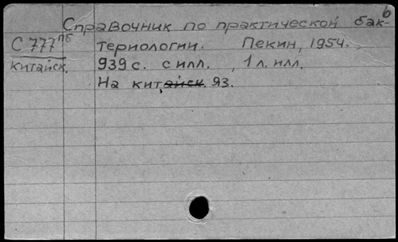 б
Справочник по практической бак-
С 777 ПБ териологии. Пекин, 1954.,
китайск. 939 с. с илл., 1 л. илл.
На китайск. яз.